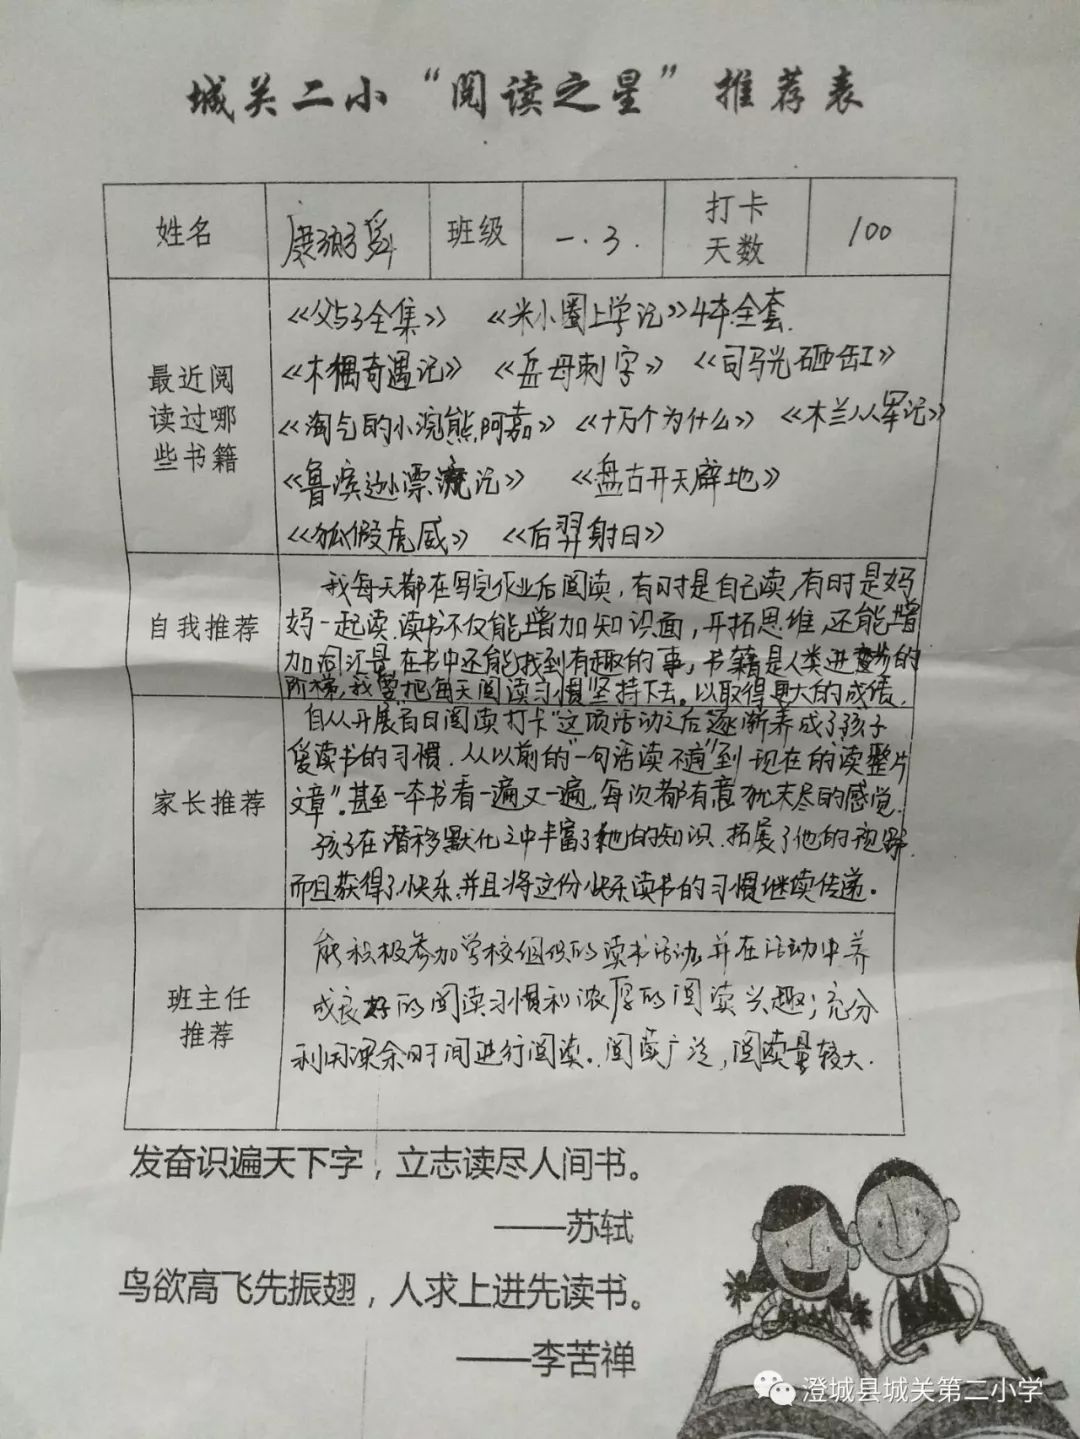 城关二小“阅读之星”推荐表
姓名 康弼舜 班级 一.3. 打卡天数 100
最近阅读过哪些书籍
《父与子全集》 《米小圈上学记》4本全套.
《木偶奇遇记》 《岳母刺字》 《司马光砸缸》
《淘气的小浣熊,阿嘉》 《十万个为什么》 《木兰从军记》
《鲁滨逊漂流记》 《盘古开天辟地》
《狐假虎威》 《后羿射日》
自我推荐
我每天都在写完作业后阅读,有时是自己读,有时是妈
妈一起读.读书不仅能增加知识面,开拓思维,还能增
加词汇量,在书中还能找到有趣的事,书籍是人类进步的
阶梯,我要把每天阅读习惯坚持下去。以取得更大的成绩.
家长推荐
自从开展百日阅读打卡”这项活动之后逐渐养成了孩子
爱读书的习惯.从以前的“一句话读不通”到“现在的读整片
文章”.甚至一本书看一遍又一遍,每次都有意犹未尽的感觉.
孩子在潜移默化之中丰富了他的知识.拓展了他的视野.
而且获得了快乐,并且将这份快乐读书的习惯继续传递。
班主任推荐
能积极参加学校组织的读书活动,并在活动中养
成良好的阅读习惯和浓厚的阅读兴趣;充分
利用课余时间进行阅读。阅读广泛,阅读量较大.
发奋识遍天下字，立志读尽人间书。
——苏轼
鸟欲高飞先振翅，人求上进先读书。
——李苦禅
澄城县城关第二小学